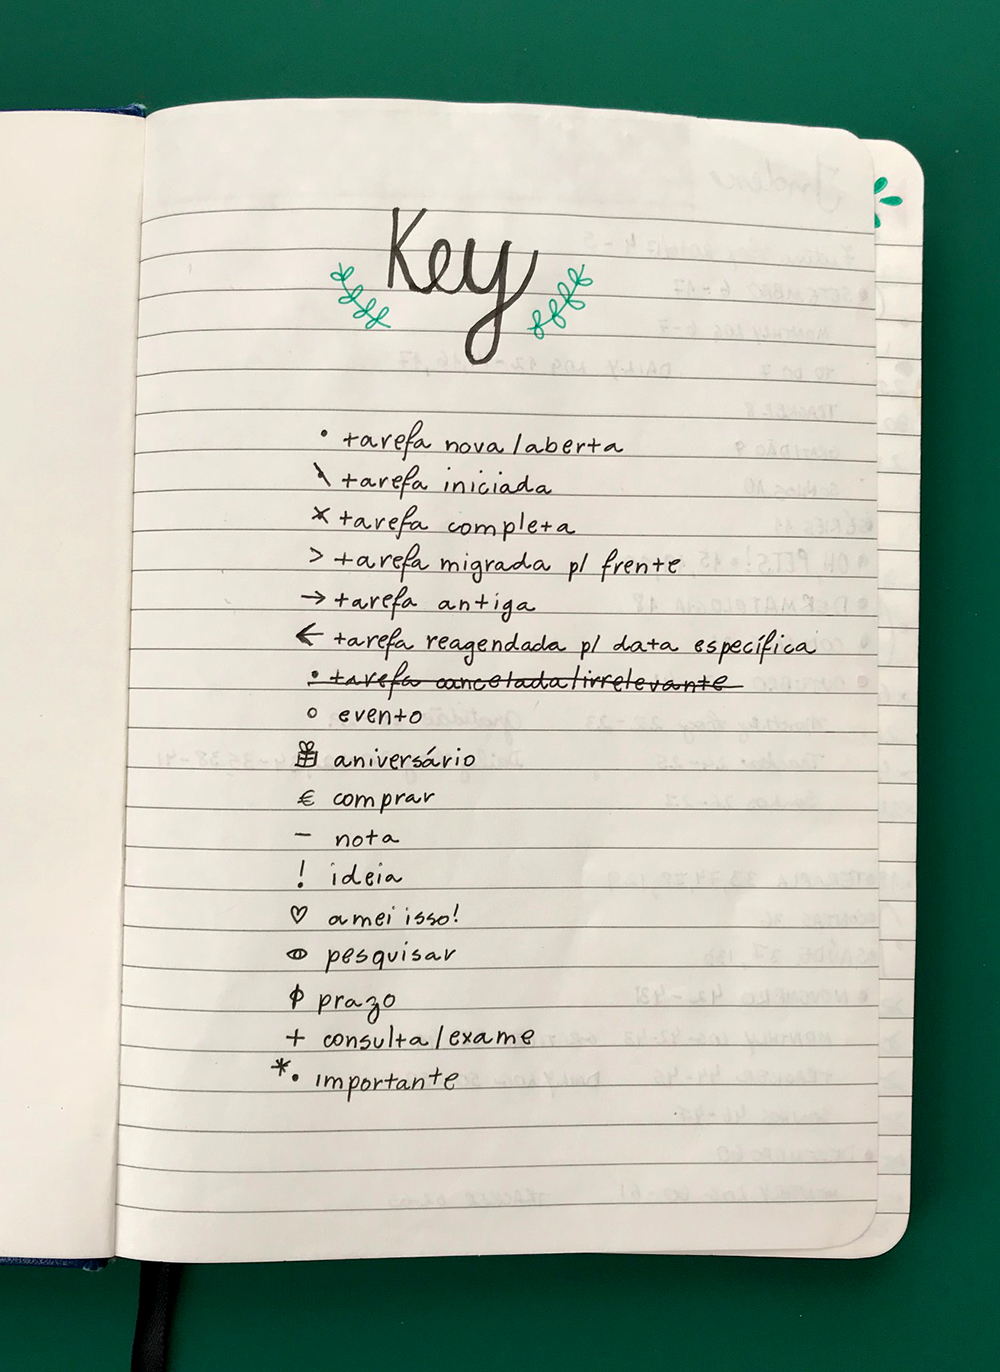 Key
• tarefa nova/aberta
\ tarefa iniciada
× tarefa completa
> tarefa migrada p/ frente
→ tarefa antiga
← tarefa reagendada p/ data específica
• tarefa cancelada/irrelevante
o evento
aniversário
€ comprar
– nota
! ideia
♡ amei isso!
pesquisar
ϕ prazo
+ consulta/exame
*• importante